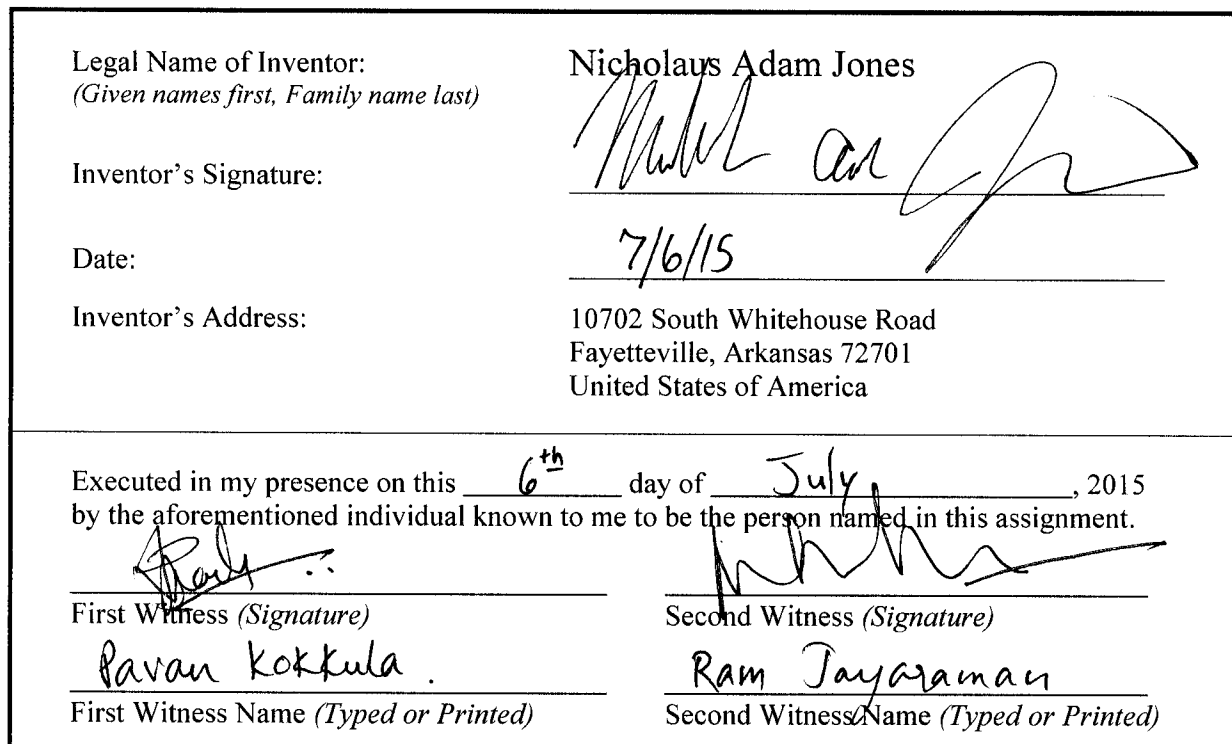 Legal Name of Inventor: Nicholaus Adam Jones
(Given names first, Family name last)
Inventor's Signature:
Date: 7/6/15
Inventor's Address: 10702 South Whitehouse Road
Fayetteville, Arkansas 72701
United States of America
Executed in my presence on this 6th day of July, 2015
by the aforementioned individual known to me to be the person named in this assignment.
First Witness (Signature) Second Witness (Signature)
Pavan Kokkula. Ram Jayaraman
First Witness Name (Typed or Printed) Second Witness Name (Typed or Printed)